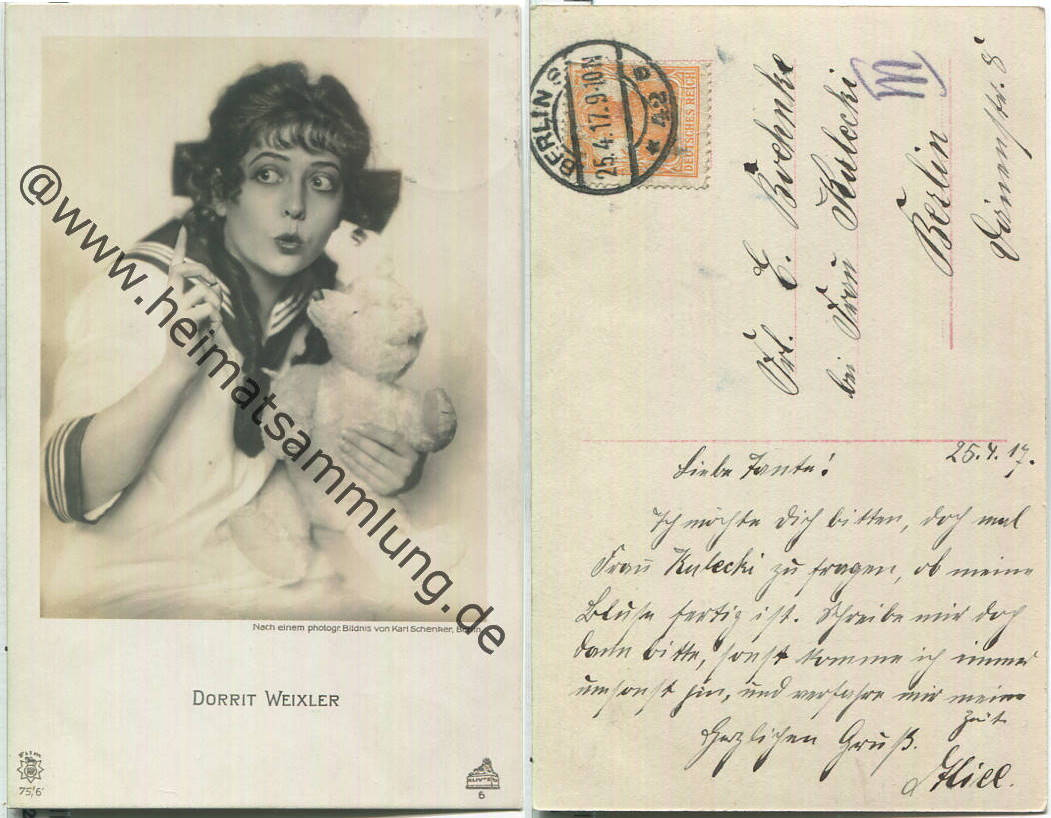 @www.heimatsammlung.de
Nach einem photogr. Bildnis von Karl Schenker, Berlin
DORRIT WEIXLER
75/6
6
BERLIN
25.4.17.9-10N
* 42
DEUTSCHES REICH
Frl. E. Boehnke
bei Frau Kulecki
Berlin
25.4.17.
Liebe Tante!
Ich möchte Dich bitten, doch mal
Frau Kulecki zu fragen, ob meine
Bluse fertig ist. Schreibe mir doch
dann bitte, sonst komme ich immer
umsonst hin, und verfahre mir meine
Zeit
Herzlichen Gruß.